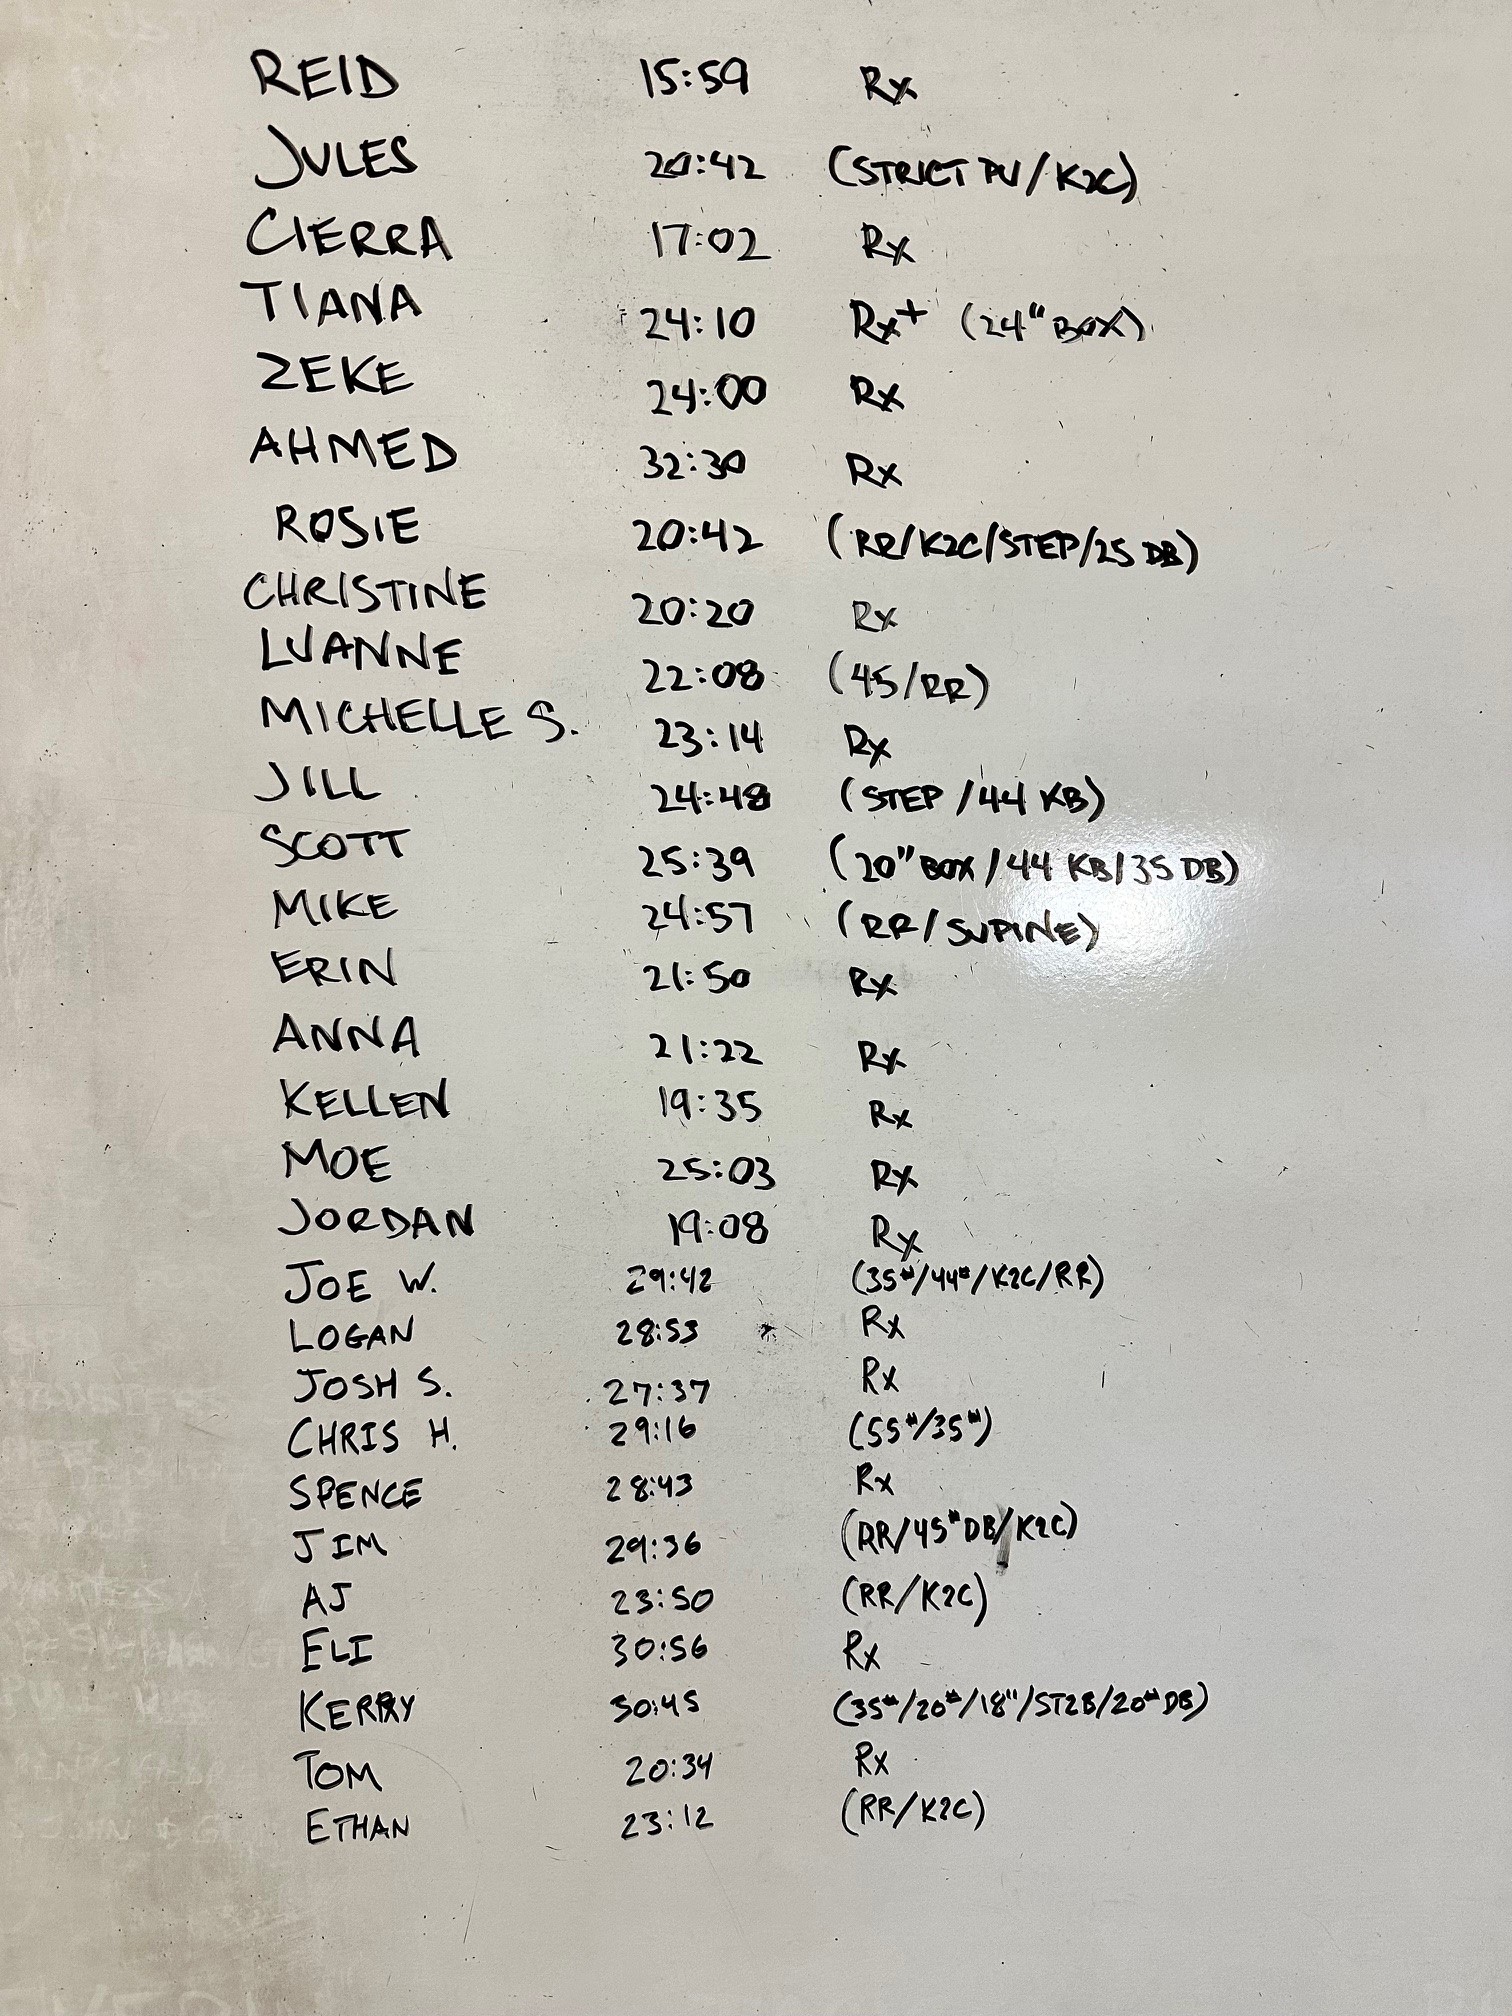 REID 15:59 Rx
JULES 20:42 (STRICT PU/K2C)
CIERRA 17:02 Rx
TIANA 24:10 Rx+ (24" BOX)
ZEKE 24:00 Rx
AHMED 32:30 Rx
ROSIE 20:42 (RR/K2C/STEP/25 DB)
CHRISTINE 20:20 Rx
LUANNE 22:08 (45/RR)
MICHELLE S. 23:14 Rx
JILL 24:48 (STEP/44 KB)
SCOTT 25:39 (20" BOX/44 KB/35 DB)
MIKE 24:57 (RR/SUPINE)
ERIN 21:50 Rx
ANNA 21:22 Rx
KELLEN 19:35 Rx
MOE 25:03 Rx
JORDAN 19:08 Rx
JOE W. 29:42 (35#/44#/K2C/RR)
LOGAN 28:53 Rx
JOSH S. 27:37 Rx
CHRIS H. 29:16 (55#/35#)
SPENCE 28:43 Rx
JIM 29:36 (RR/45#DB/K2C)
AJ 23:50 (RR/K2C)
ELI 30:56 Rx
KERRY 30:45 (35#/20#/18"/ST2B/20#DB)
TOM 20:34 Rx
ETHAN 23:12 (RR/K2C)